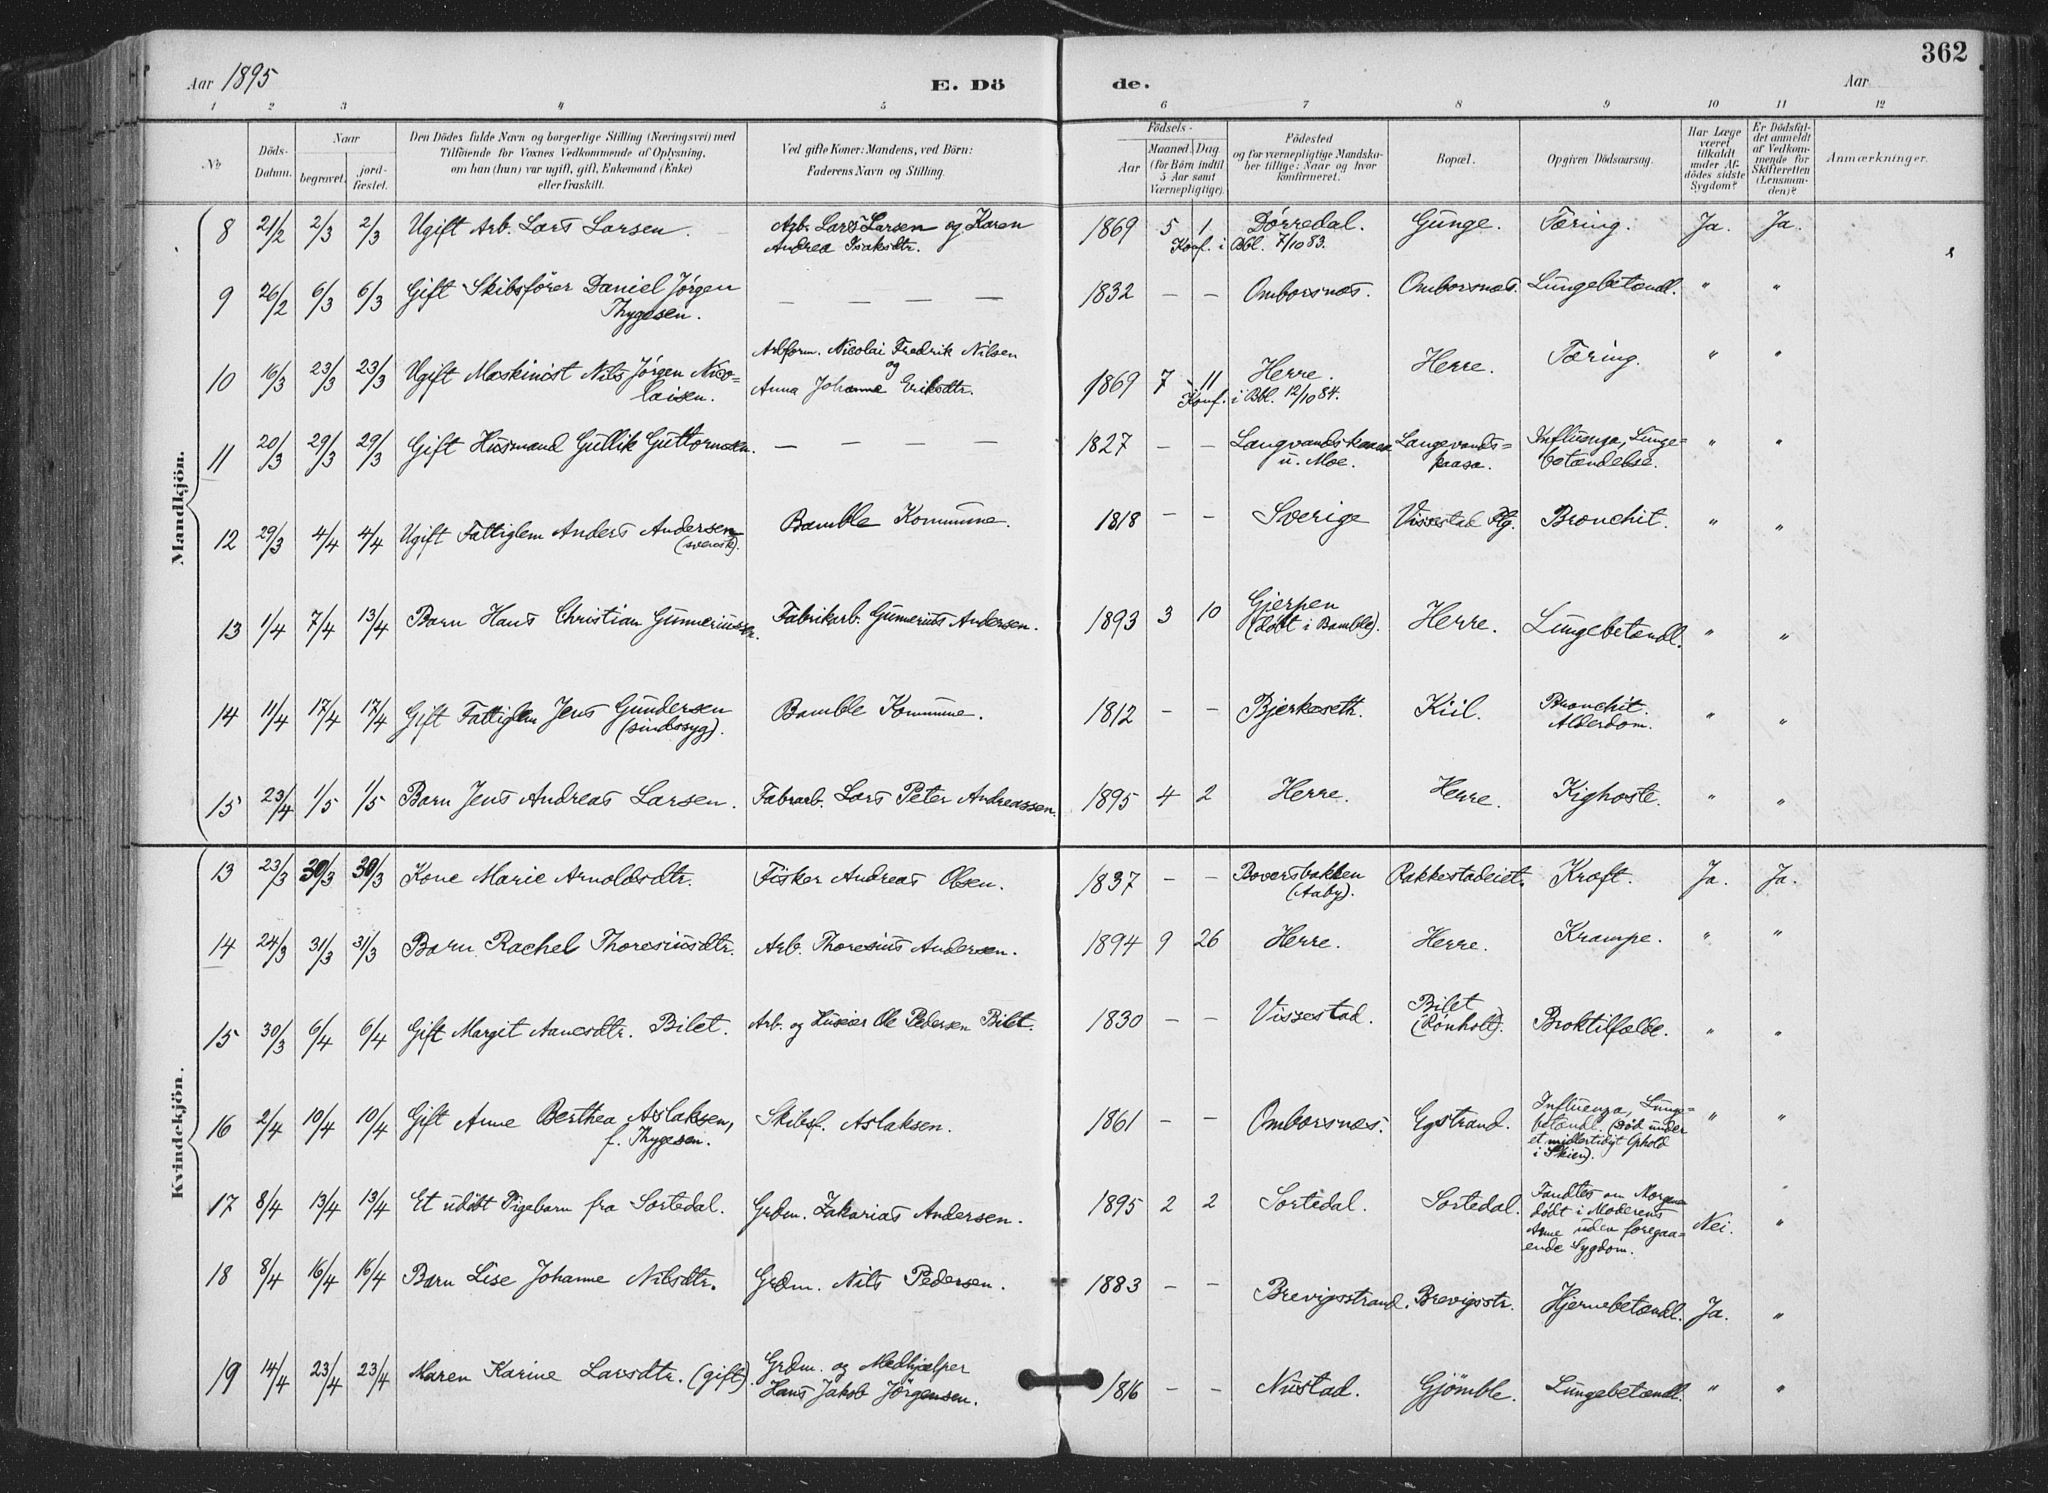 362
Aar 1895 E. Dö de. Aar
1 2 3 4 5 6 7 8 9 10 11 12
No.
Döds-Datum.
Naar
begravet.
jord-fæstet.
Den Dödes fulde Navn og borgerlige Stilling (Næringsvei) med
Tilföiende for Voxnes Vedkommende af Oplysning,
om han (hun) var ugift, gift, Enkemand (Enke)
eller fraskilt.
Ved gifte Koner: Mandens, ved Börn:
Faderens Navn og Stilling.
Födsels-
Aar
Maaned. Dag
(for Börn indtil
5 Aar samt
Værnepligtige).
Födested
og for værnepligtige Mandska-
ber tillige: Naar og hvor
konfirmeret.
Bopæl.
Opgiven Dödsaarsag.
Har Læge
været
tilkaldt
under Af-
dödes sidste
Sygdom?
Er Dödsfal-
det anmeldt
af Vedkom-
mende for
Skifteretten
(Lensman-
den)?
Anmærkninger.
Mandkjön.
8 21/2 2/3 2/3 Ugift Arb. Lars Larsen. Arb. Lars Larsen og Karen 1869 5 1 Dørredal. Gunge. Tæring. Ja. Ja.
Andrea Isaksdtr. Konf. i Bbl. 7/10 83.
9 26/2 6/3 6/3 Gift Skibsfører Daniel Jørgen — — — — 1832 — — Omborsnæs. Omborsnæs. Lungebetændl. " "
Thygesen.
10 16/3 23/3 23/3 Ugift Maskinist Nils Jørgen Nico- Arbform. Nicolai Fredrik Nilsen 1869 7 11 Herre. Herre. Tæring. " "
laisen. og
Anna Johanne Eriksdtr. Konf. i Bbl. 12/10 84.
11 20/3 29/3 29/3 Gift Husmand Gullik Guttormsen. — — — — 1827 — — Langvandskaasa Langevands- Influenza, Lunge- " "
u. Moe. kaasa. betændelse.
12 29/3 4/4 4/4 Ugift Fattiglem Anders Andersen Bamble Kommune. 1818 — — Sverige Vissestad Plg. Bronchit. " "
(svensk).
13 1/4 7/4 13/4 Barn Hans Christian Gunneriussen. Fabrikarb. Gunerius Andersen. 1893 3 10 Gjerpen Herre. Lungebetændl. " "
(døbt i Bamble).
14 11/4 17/4 17/4 Gift Fattiglem Jens Gundersen Bamble Kommune. 1812 — — Bjerkeseth. Kiil. Bronchit. " "
(sindssyg). Alderdom.
15 23/4 1/5 1/5 Barn Jens Andreas Larsen. Fabrarb. Lars Peter Andreassen. 1895 4 2 Herre. Herre. Kighoste. " "
Kvindekjön.
13 23/3 30/3 30/3 Kone Marie Arnoldsdtr. Fisker Andreas Olsen. 1837 — — Boversbakken Rakkestadeiet. Kræft. Ja. Ja.
(Aaby).
14 24/3 31/3 31/3 Barn Rachel Thoresiusdtr. Arb. Thoresius Andersen. 1894 9 26 Herre. Herre. Krampe. " "
15 30/3 6/4 6/4 Gift Margit Aanesdtr. Bilet. Arb. og Huseier Ole Pedersen Bilet. 1830 — — Vissestad. Bilet Broktilfælde. " "
(Rønholt).
16 2/4 10/4 10/4 Gift Anne Berthea Aslaksen, Skibsf. Aslaksen. 1861 — — Omborsnæs. Gystrand. Influenza, Lunge- " "
f. Thygesen. betændl. (Død under
et midlertidigt Ophold
i Skien).
17 8/4 13/4 13/4 Et udøbt Pigebarn fra Sortedal. Grdm. Zakarias Andersen. 1895 2 2 Sortedal. Sortedal. Fandtes om Morgenen Nei. "
dødt i Moderens
Arme uden foregaa-
ende Sygdom.
18 8/4 16/4 16/4 Barn Lise Johanne Nilsdtr. Grdm. Nils Pedersen. 1883 — — Brevigsstrand. Brevigsstr. Hjernebetændl. Ja. "
19 14/4 23/4 23/4 Maren Karine Larsdtr. (gift). Grdm. og Medhjælper 1816 — — Nustad. Gjømble. Lungebetændl. " "
Hans Jakob Jørgensen.